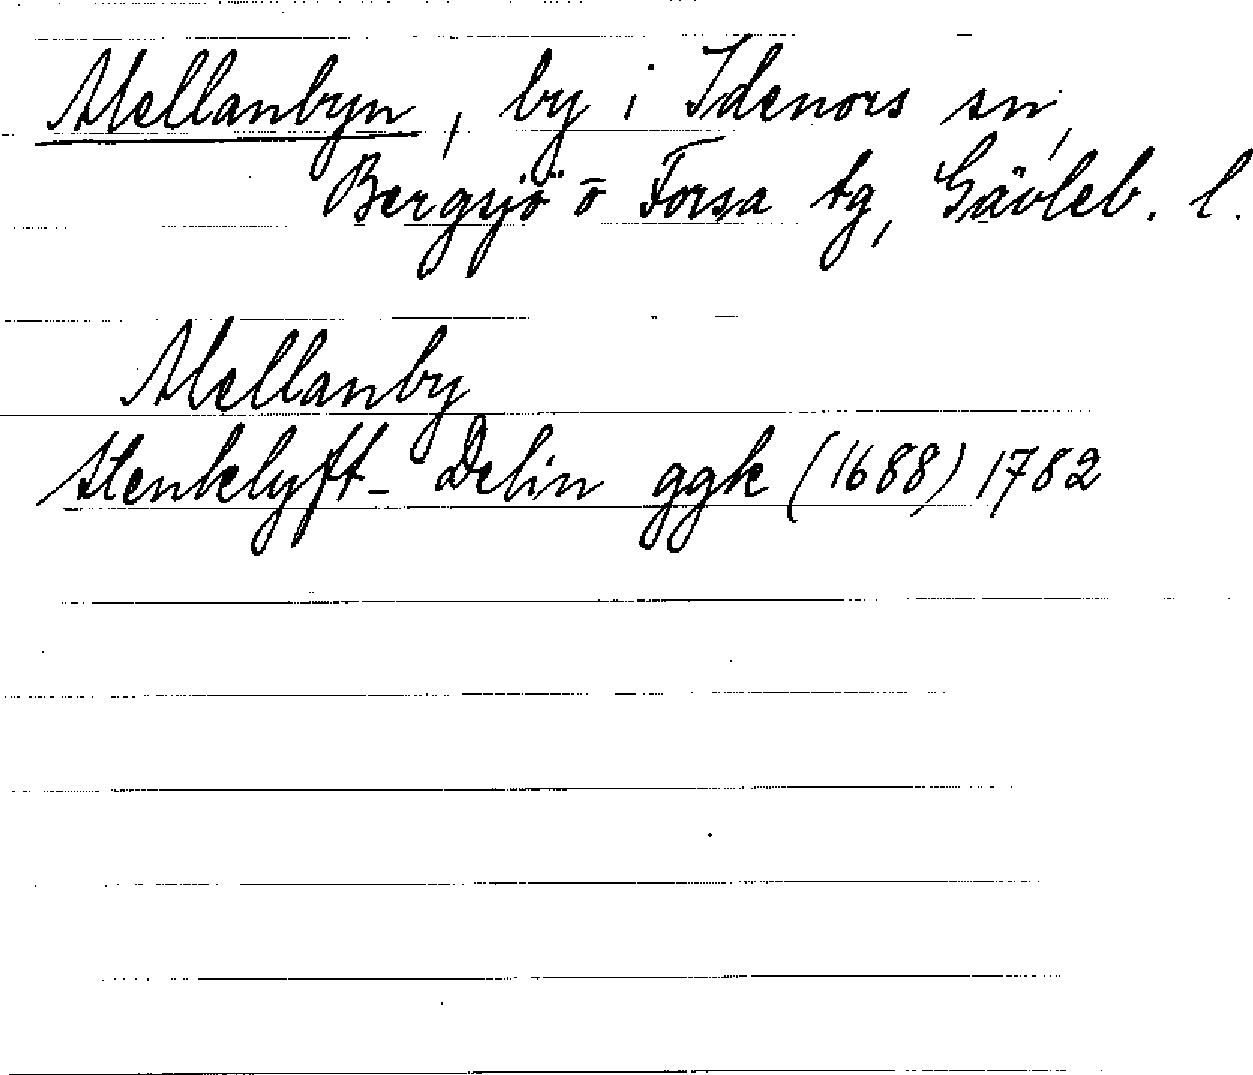 Mellanbyn, by i Idenors sn,
Bergsjö o Forsa tg, Gävleb. l.
Mellanby
Stenklyft- Delin ggk (1688) 1782